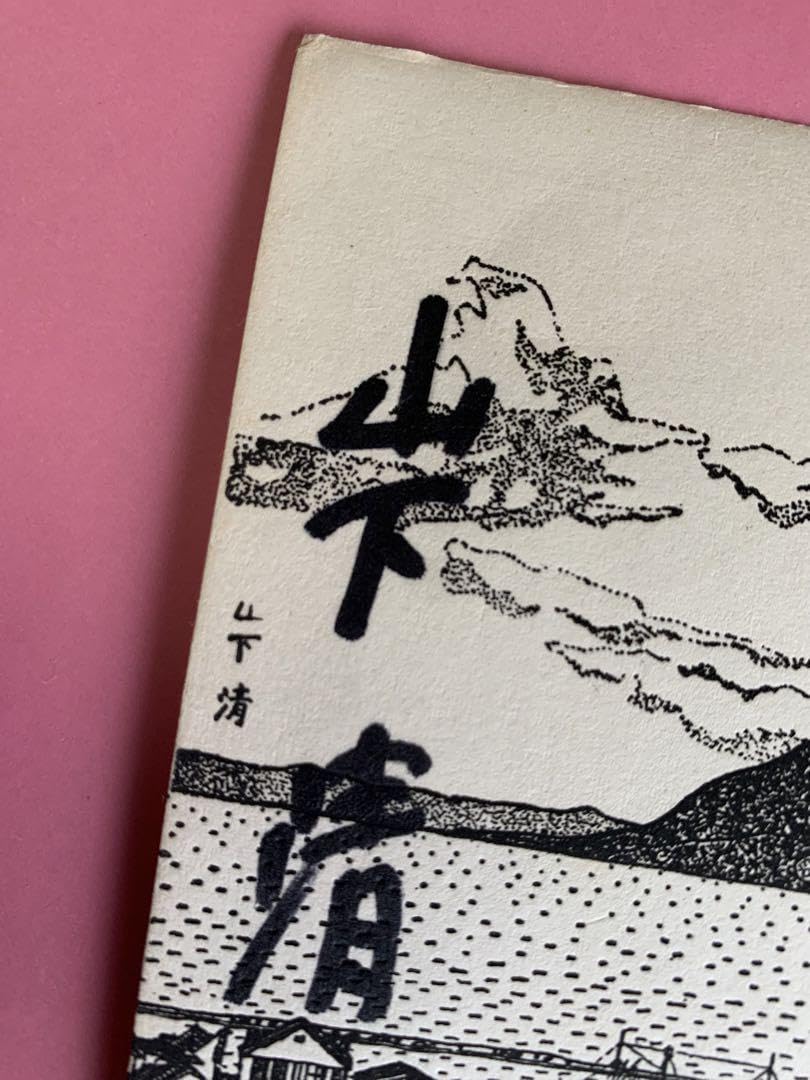 山下 清
山下 清